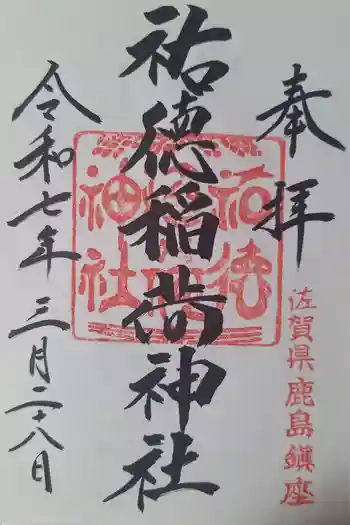 奉拝
佐賀県鹿島鎮座
祐徳稲荷神社
祐徳稲荷神社
令和七年三月二十八日